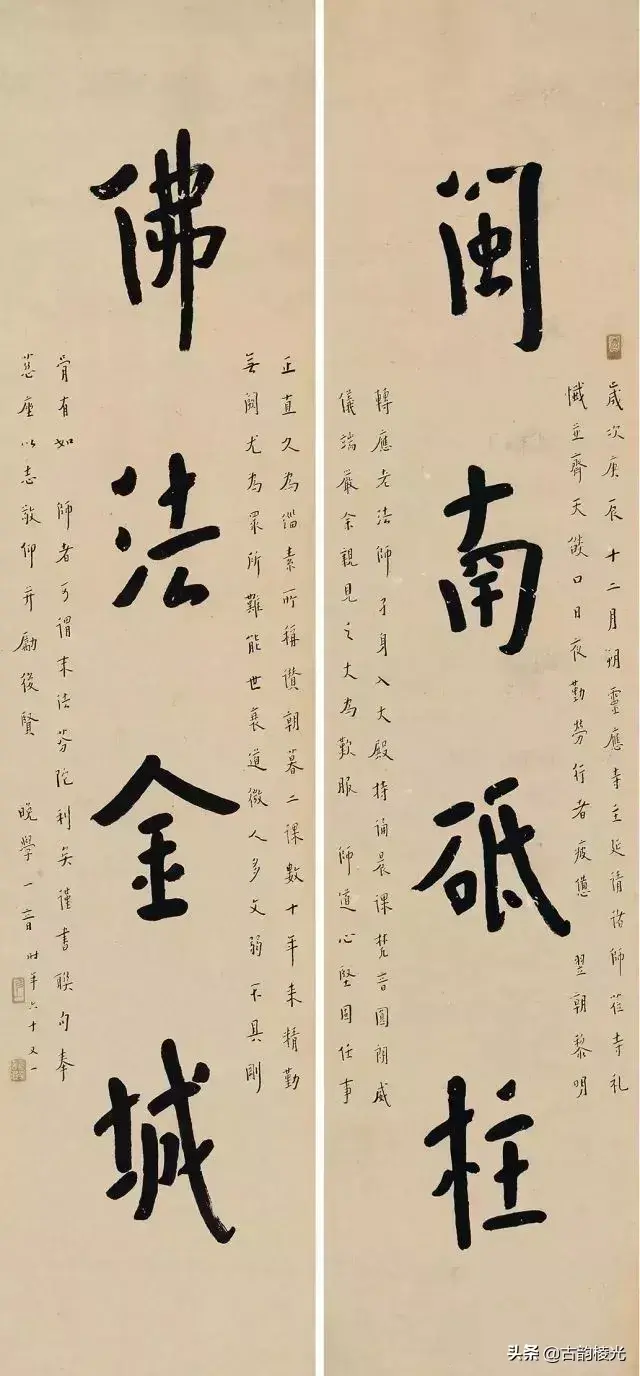 閩南砥柱
歲次庚辰十二月朔靈應寺主延請諸師蒞寺礼
懺並齊天燄口日夜勤勞行者疲憊 翌朝黎明
轉應老法師孑身入大殿持誦晨課梵音圓朗威
儀端嚴余親見之大為歎服 師道心堅固任事
佛法金城
正直久為緇素所稱讚朝暮二課數十年来精勤
無闕尤為眾所難能世衰道微人多文弱不具剛
骨有如 師者可謂末法芬陀利矣謹書聯句奉
慈座以志敬仰并勵後賢 晚學一音時年六十又一
头条 @古韵棱光